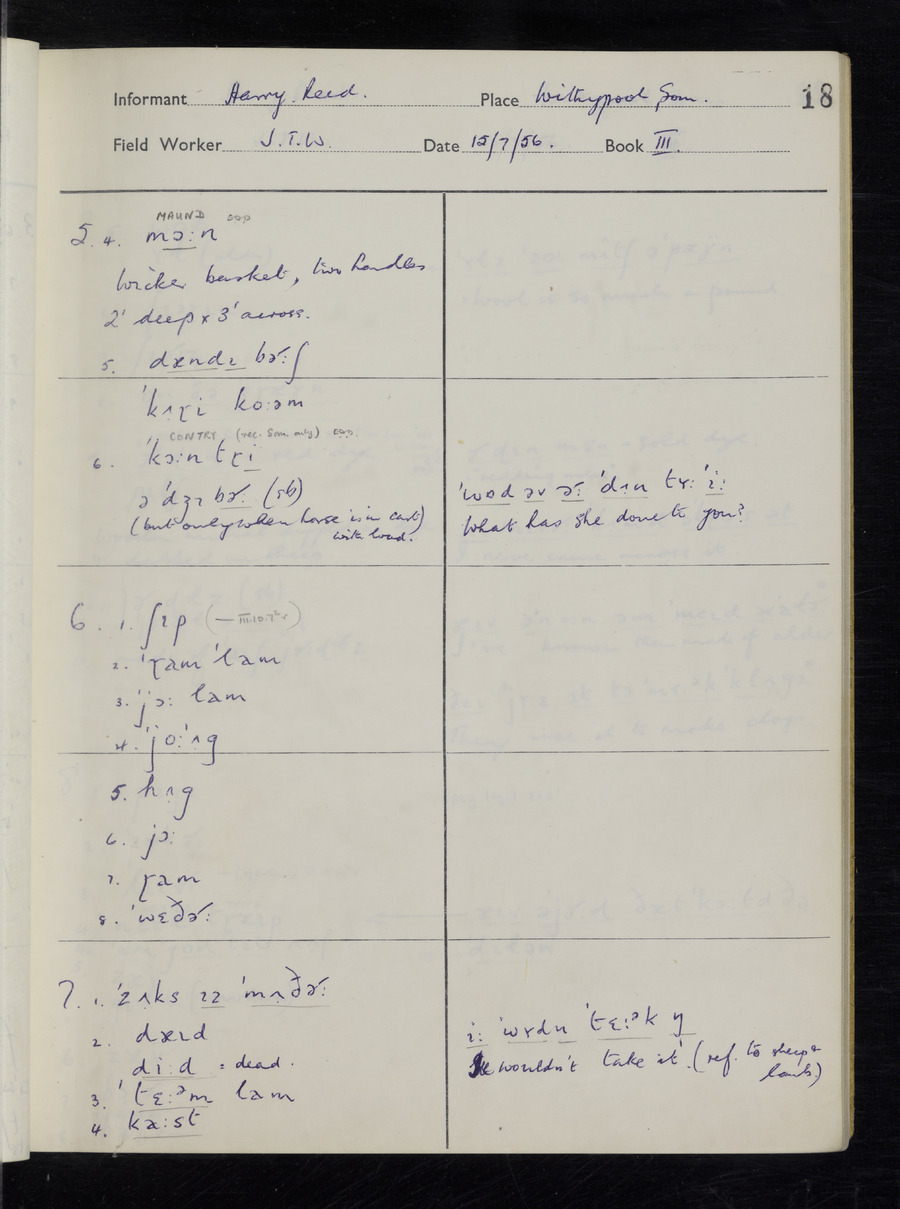 Informant Harry Reed. Place Withypool Som. 18
Field Worker J.T.W. Date 15/7/56. Book III.
MAUND
5. 4. mɔ:n
Wicker basket, two handles
2' deep x 3' across.
5. dændɪ bɚ:ʃ
'kʌɽi ko:əm
CONTRY (rec. Som. only)
6. 'kɔ:ntɽi
ə'dʒɪ bɚ: (sb)
(but only when horse is in cart)
with load.
'wɒd əv ɚ: 'dɪn tʏ: 'i:
What has she done to you?
6. 1. ʃɪp (— III.10.7)
2. 'ɽam 'lam
3. 'jɔ: lam
4. 'jo:'ʌg
5. hʌg
6. jɔ:
7. ɽam
8. 'wɛðɚ:
7. 1. 'zʌks ɪz 'mʌðɚ:
2. dæɪd
di:d = dead.
3. 'tɛ:ᵊm lam
4. ka:st
i: 'wʏdn 'tɛ:ᵊk ŋ
He wouldn't take it. (ref. to sheep &
lamb)